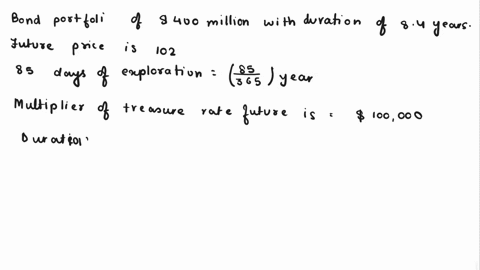 Bond portfoli of $ 400 million with duration of 8.4 years.
Future price is 102
85 days of exploration = (85/365) year
Multiplier of treasure rate future is = $ 100,000
Duration